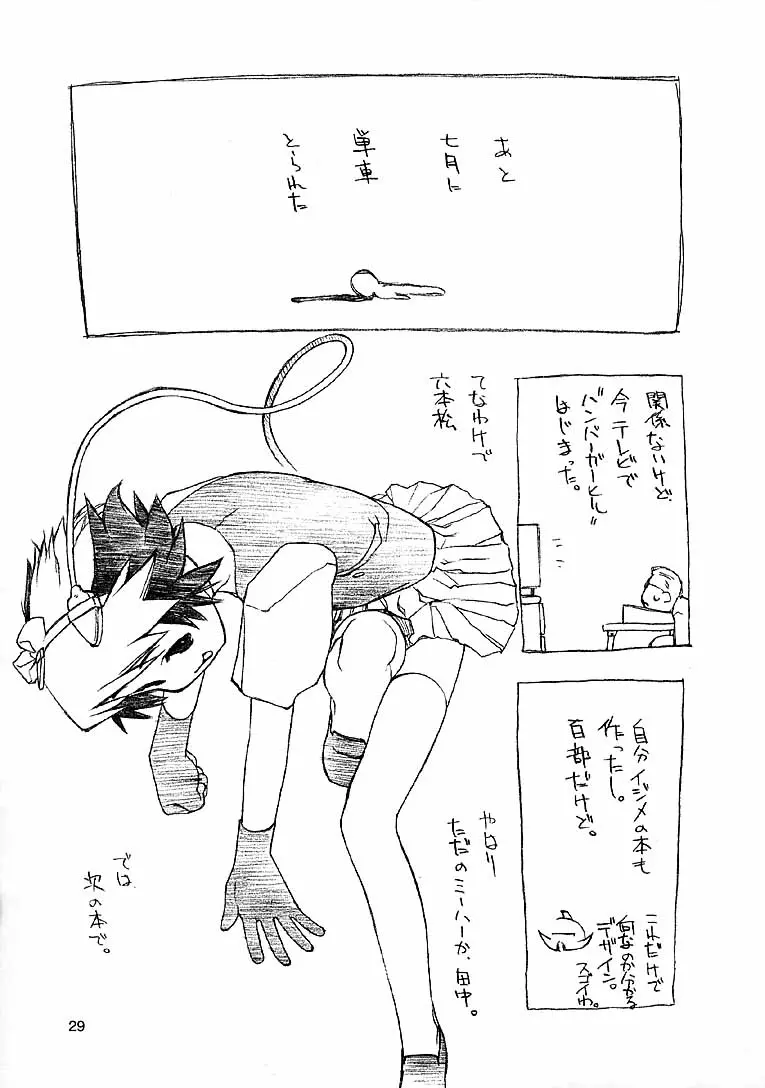 あと
七月に
単車
とられた
関係ないけど、
今テレビで
"バンバーガーヒル"
はじまった。
てなわけで
六本松
自分イジメの本も
作ったし。
百部だけど。
これだけで
何なのか分かる
デザイン。
スゴイわ。
やはり
ただのミーハーか、田中。
では
次の本で。
29